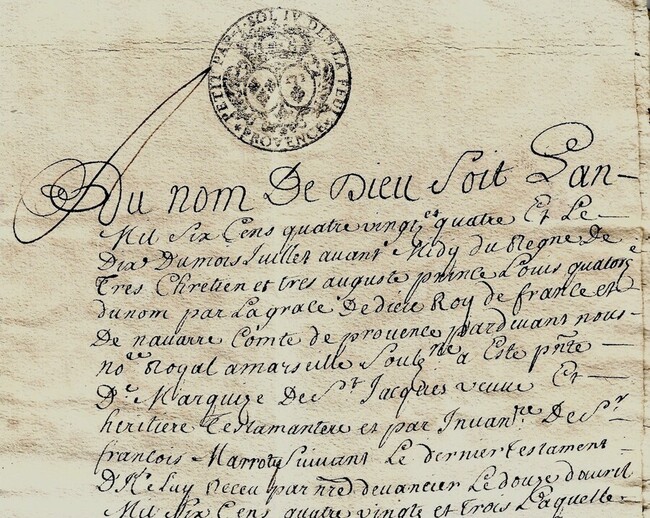 PETIT PAP. 1. SOL IV DE. LA FEUI
PROVENCE
Au nom De Dieu Soit Lan-
Mil Six Cens quatre vingt es quatre Et Le
Dix Dumois Juillet avant Midy du Regne De
Tres Chretien et tres auguste prince Louis quatorze
dunom par Lagrace Dedieu Roy de france et
De navarre Comte de provence pardevant nous-
no.re Royal amarseille Soubz.né a Este pn̄te
D.e Marquize De S.t Jacques veuve Et
heritiere testamantere et par Invan.re De S.r
francois Marroty Suivant Le dernier testament
D'Ice Luy Receu par nre devancier Le douze d'avril
Mil Six Cens quatre vingts et trois Laquelle